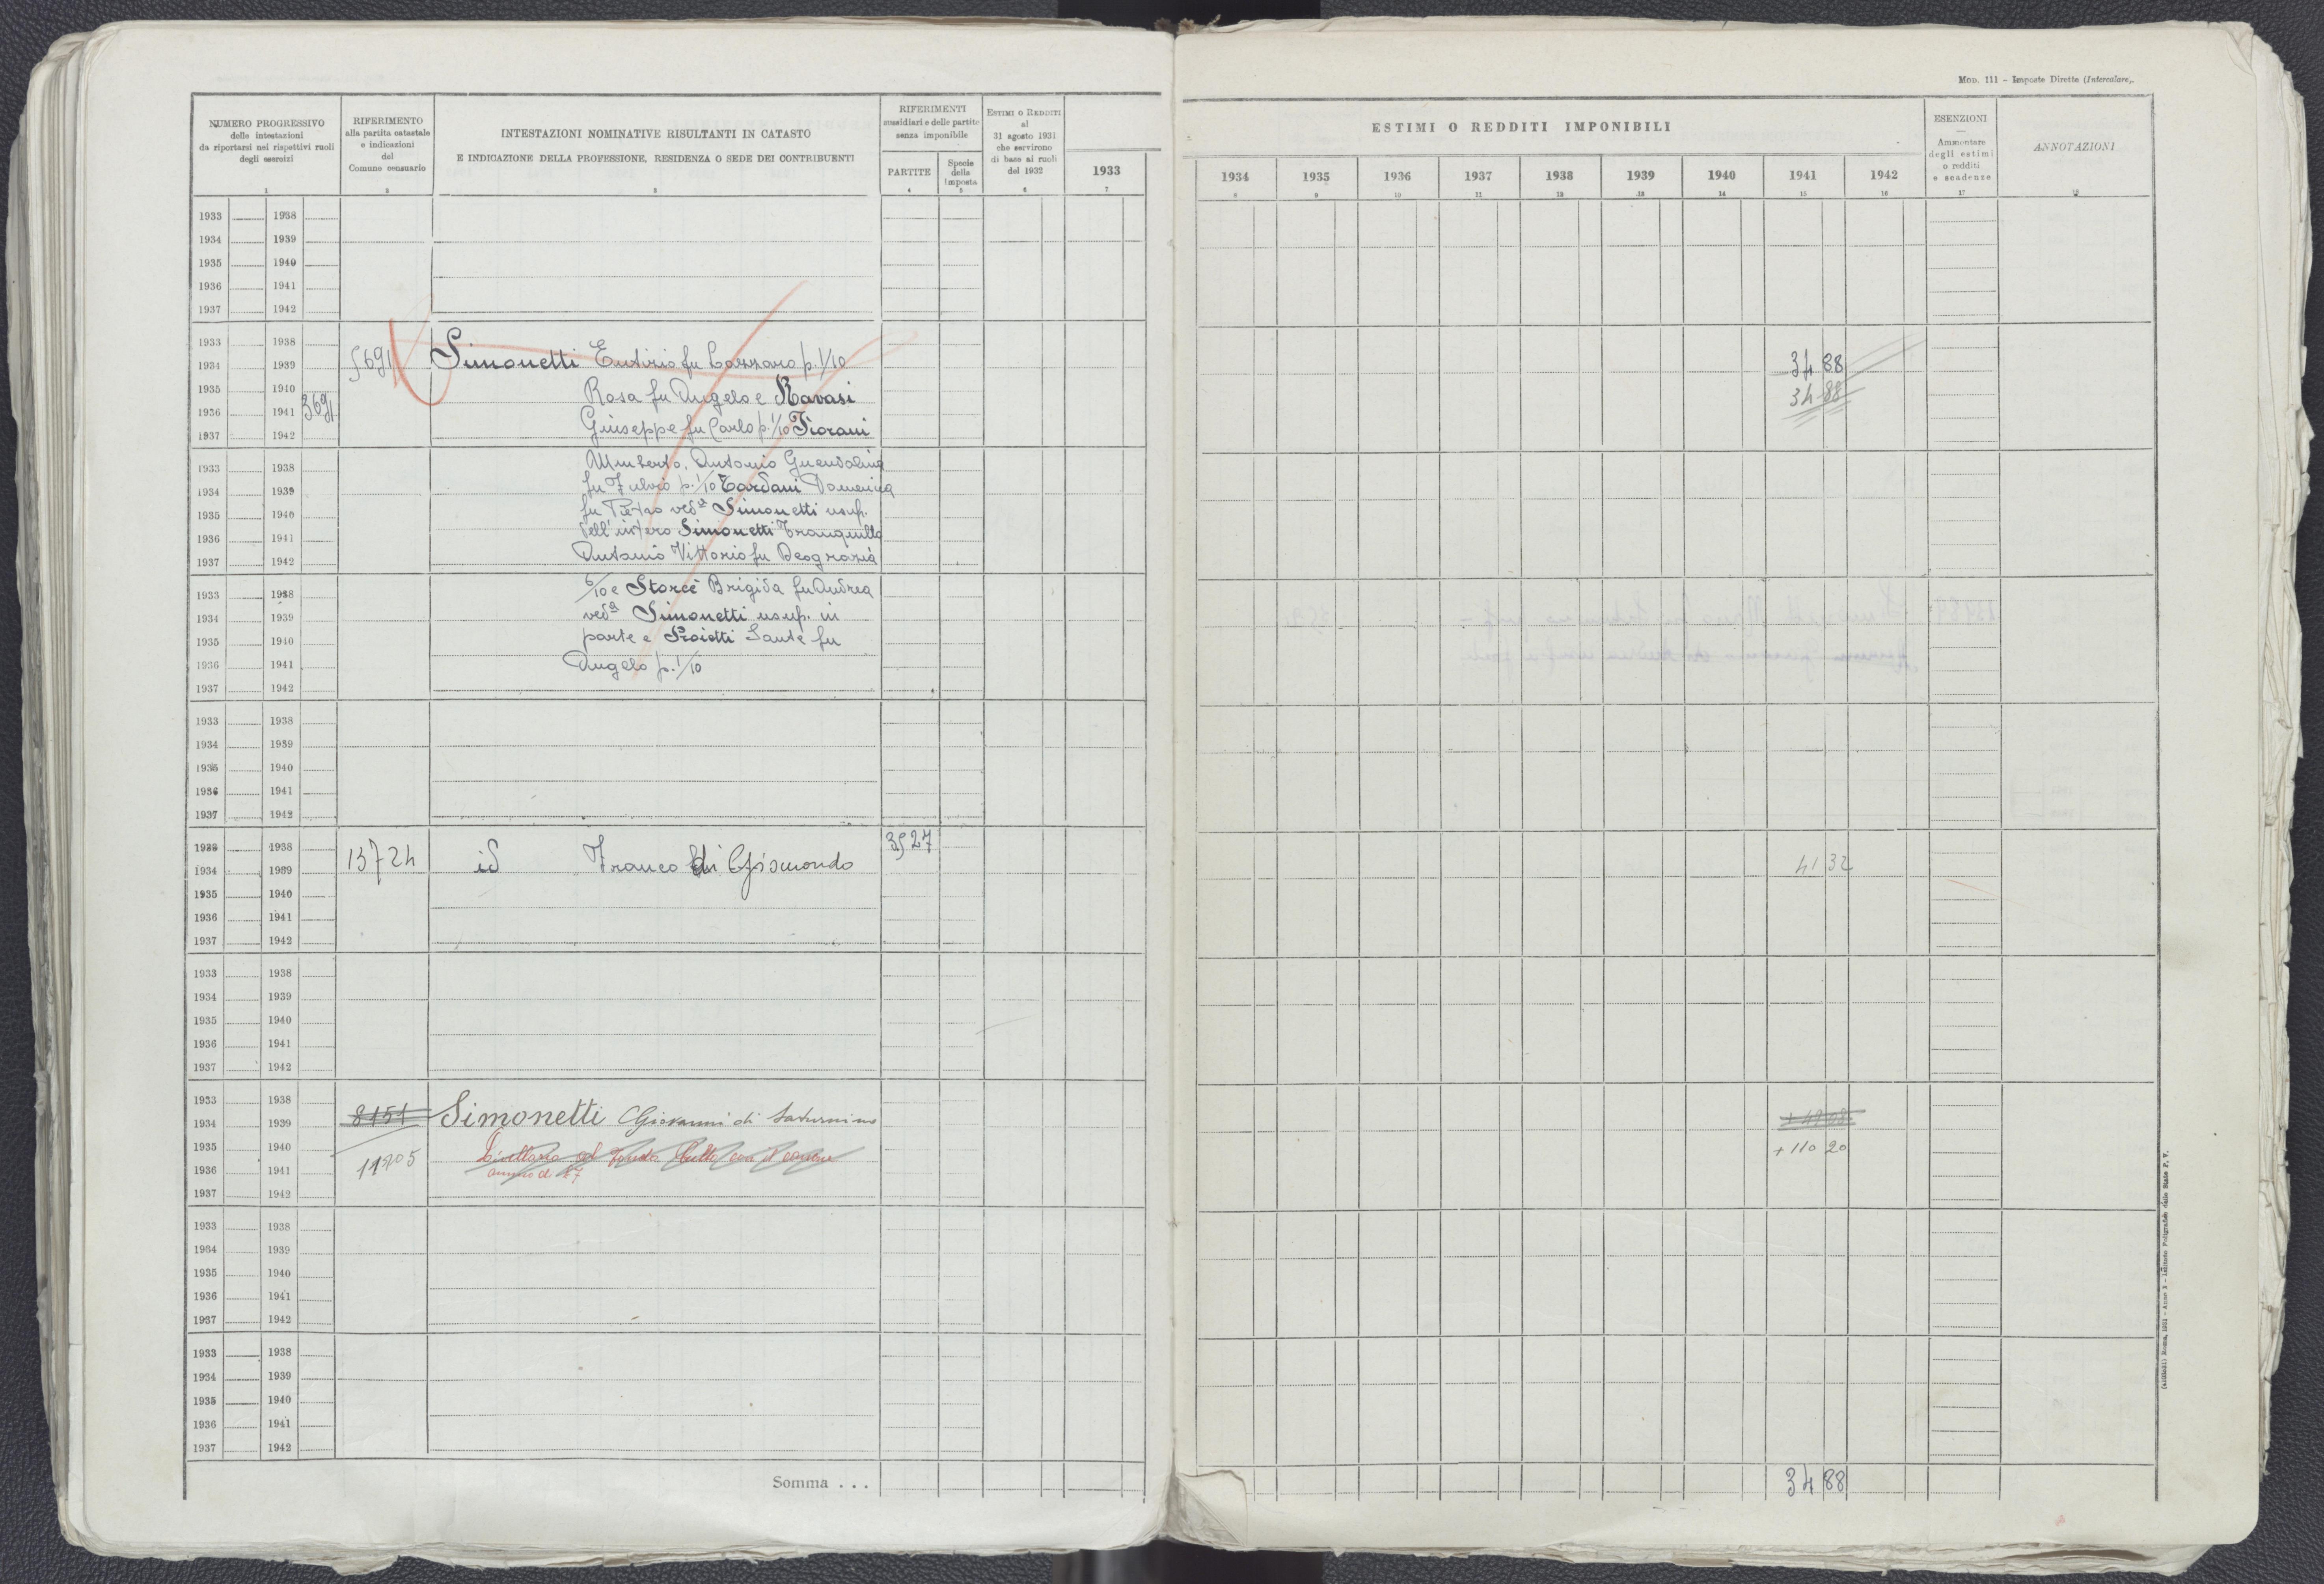 MOD. 111 - Imposte Dirette (Intercalare).
NUMERO PROGRESSIVO
delle intestazioni
da riportarsi nei rispettivi ruoli
degli esercizi
1
RIFERIMENTO
alla partita catastale
e indicazioni
del
Comune censuario
2
INTESTAZIONI NOMINATIVE RISULTANTI IN CATASTO
E INDICAZIONE DELLA PROFESSIONE, RESIDENZA O SEDE DEI CONTRIBUENTI
3
RIFERIMENTI
sussidiari e delle partite
senza imponibile
PARTITE
4
Specie
della
Imposta
5
ESTIMI O REDDITI
al
31 agosto 1931
che servirono
di base ai ruoli
del 1932
6
1933
7
ESTIMI O REDDITI IMPONIBILI
1934 1935 1936 1937 1938 1939 1940 1941 1942
8 9 10 11 12 13 14 15 16
ESENZIONI
—
Ammontare
degli estimi
o redditi
e scadenze
17
ANNOTAZIONI
18
1933 1938
1934 1939
1935 1940
1936 1941
1937 1942
1933 1938
1934 1939 5691 Simonetti Eutizio fu Lazzaro p. 1/10 34 88
1935 1940 Rosa fu Angelo e Ravasi 34 88
1936 1941 3691 Giuseppe fu Carlo p. 1/10 Fiorani
1937 1942
1933 1938 Umberto, Antonio Guendalina
1934 1939 fu Fulvio p. 1/10 Tardani Domenica
1935 1940 fu Pietro ved.a Simonetti usuf.
1936 1941 dell'intero Simonetti Tranquillo
1937 1942 Antonio Vittorio fu Deograzia
1933 1938 6/10 e Storce Brigida fu Andrea
1934 1939 ved.a Simonetti usuf. in
1935 1940 parte e Proietti Sante fu
1936 1941 Angelo p. 1/10
1937 1942
1933 1938
1934 1939
1935 1940
1936 1941
1937 1942
1933 1938 3527
1934 1939 13724 id Franco di Gismondo 41 32
1935 1940
1936 1941
1937 1942
1933 1938
1934 1939
1935 1940
1936 1941
1937 1942
1933 1938
1934 1939 8151 Simonetti Giovanni di Saturnino
1935 1940 + 110 20
1936 1941 11705 annuo di
1937 1942
1933 1938
1934 1939
1935 1940
1936 1941
1937 1942
1933 1938
1934 1939
1935 1940
1936 1941
1937 1942
Somma . . . 34 88
Roma, 1931 - Anno X - Istituto Poligrafico dello Stato P. V.